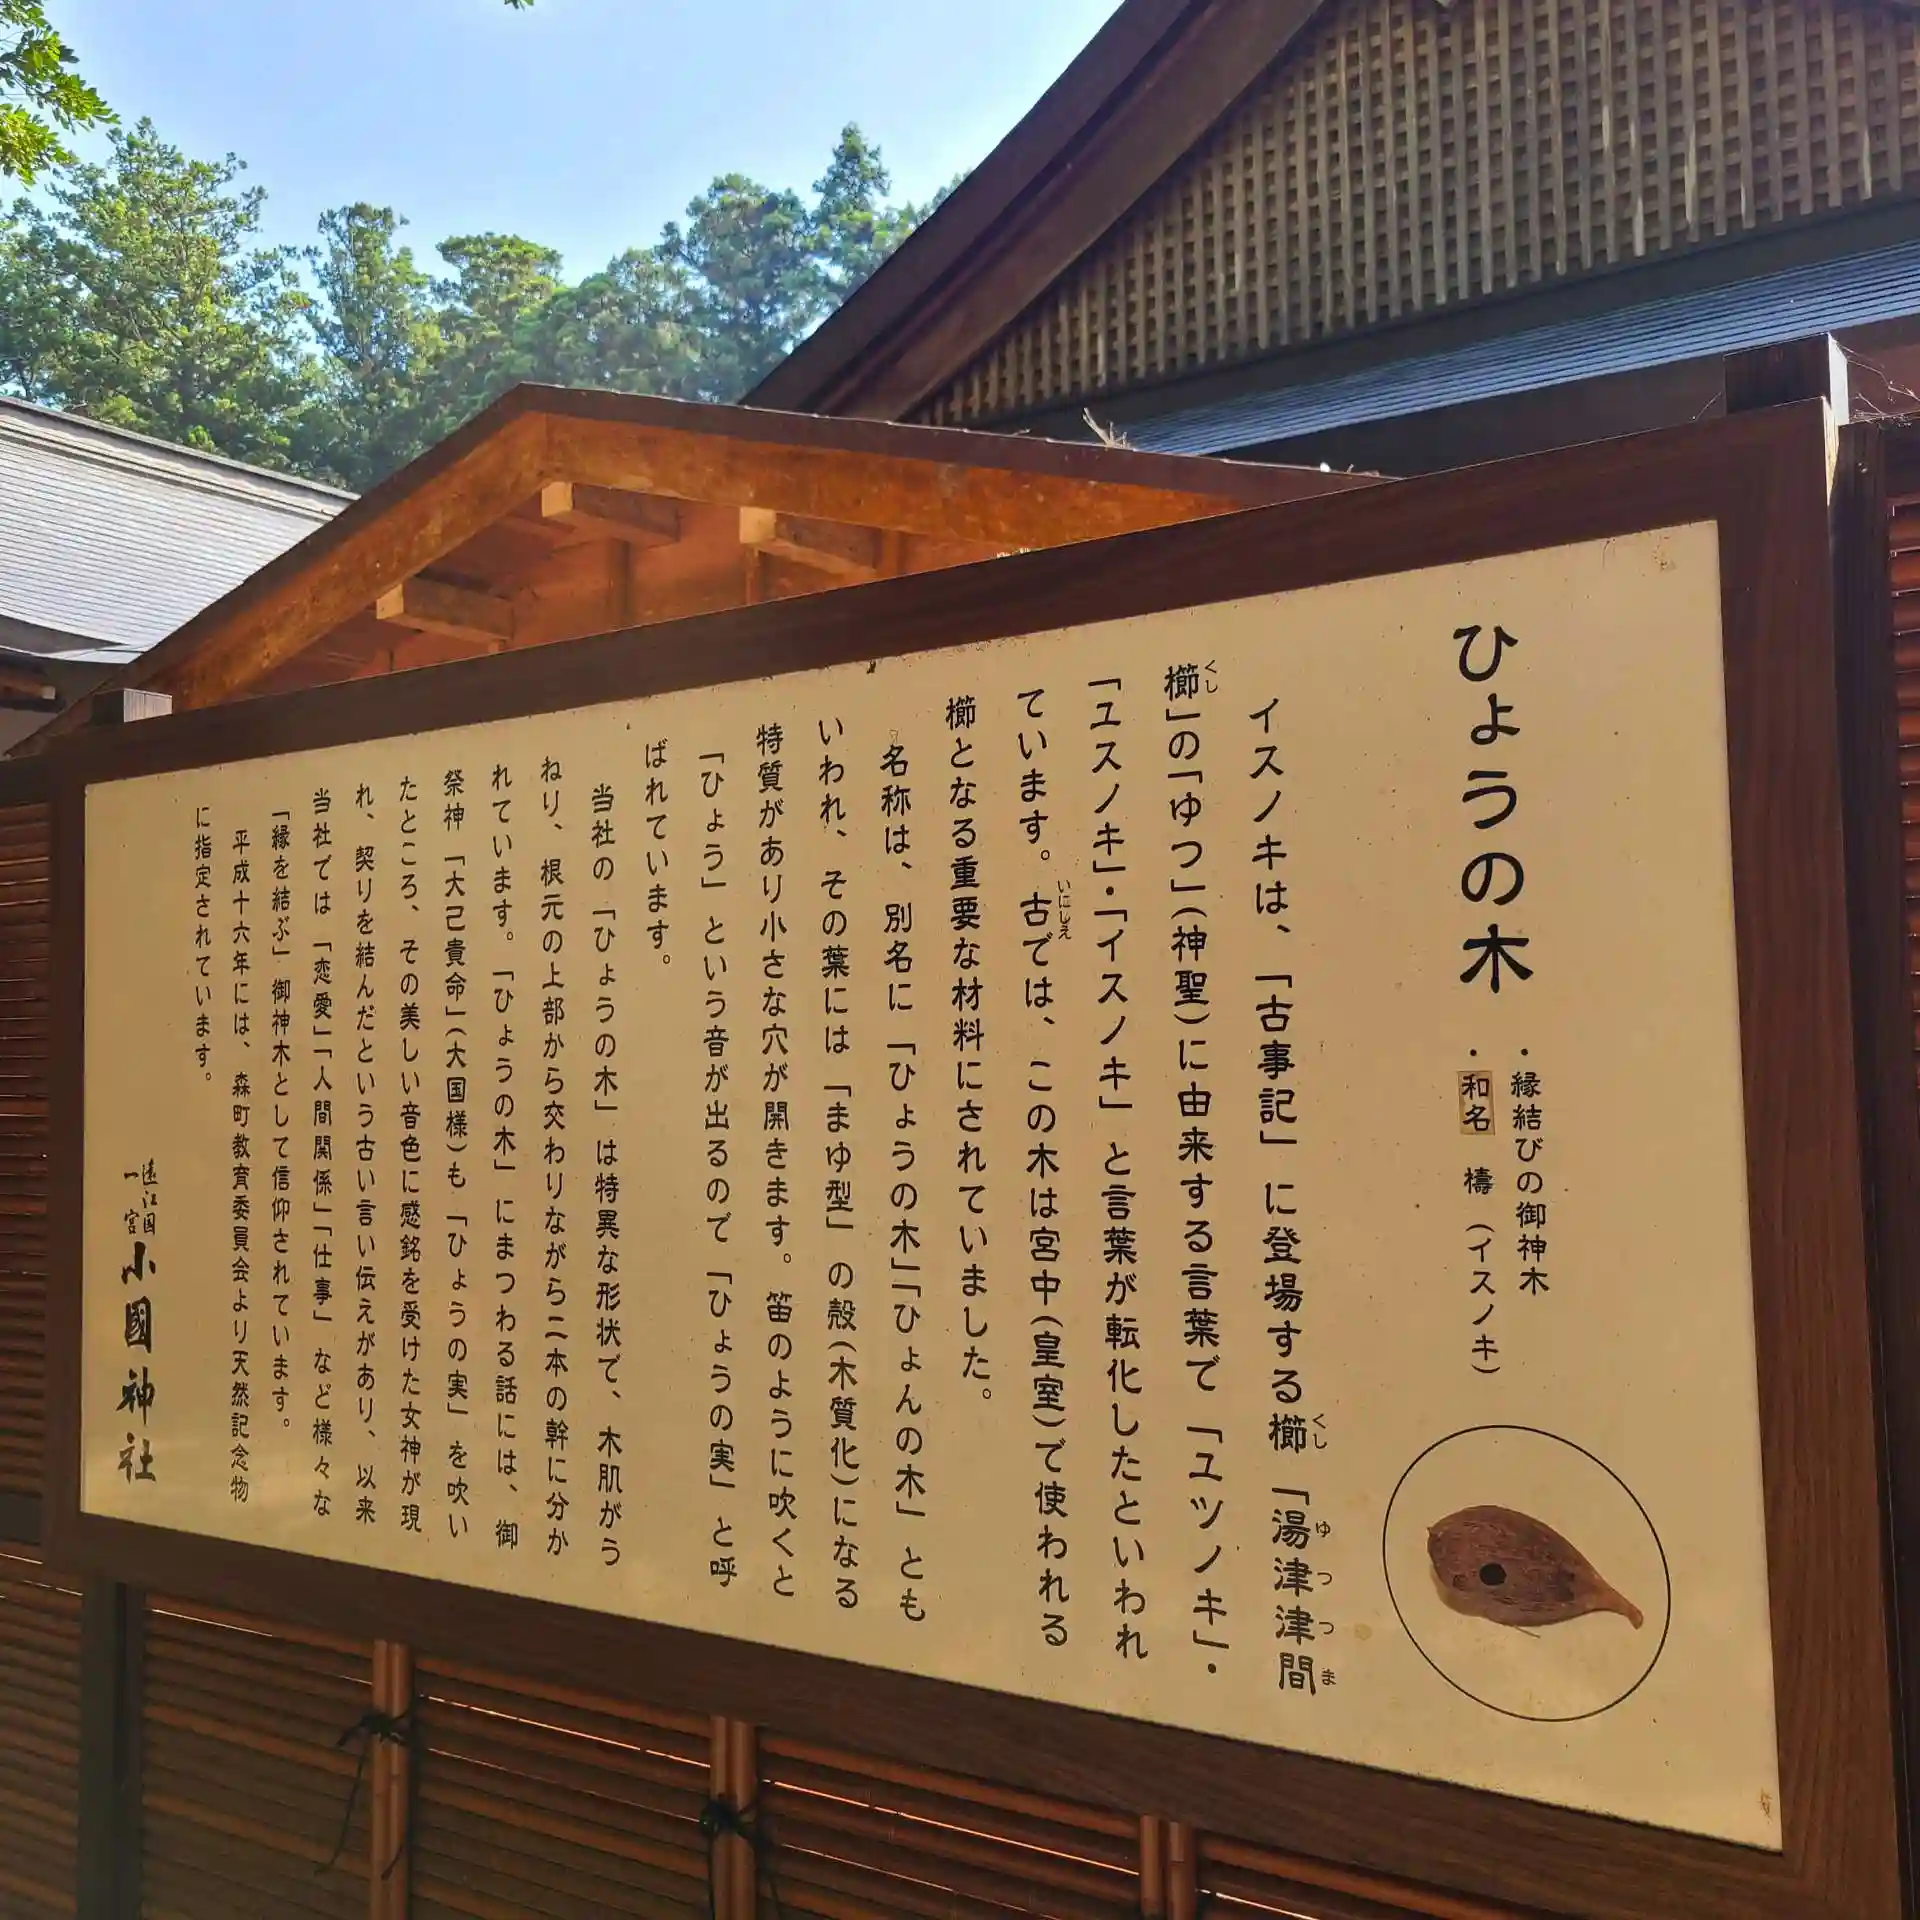 ひょうの木
・縁結びの御神木
・和名 檮(イスノキ)
イスノキは、「古事記」に登場する櫛「湯津津間
櫛」の「ゆつ」(神聖)に由来する言葉で「ユツノキ」・
「ユスノキ」・「イスノキ」と言葉が転化したといわれ
ています。古では、この木は宮中(皇室)で使われる
櫛となる重要な材料にされていました。
名称は、別名に「ひょうの木」「ひょんの木」とも
いわれ、その葉には「まゆ型」の殻(木質化)になる
特質があり小さな穴が開きます。笛のように吹くと
「ひょう」という音が出るので「ひょうの実」と呼
ばれています。
当社の「ひょうの木」は特異な形状で、木肌がう
ねり、根元の上部から交わりながら二本の幹に分か
れています。「ひょうの木」にまつわる話には、御
祭神「大己貴命」(大国様)も「ひょうの実」を吹い
たところ、その美しい音色に感銘を受けた女神が現
れ、契りを結んだという古い言い伝えがあり、以来
当社では「恋愛」「人間関係」「仕事」など様々な
「縁を結ぶ」御神木として信仰されています。
平成十六年には、森町教育委員会より天然記念物
に指定されています。
遠江国
一宮
小國神社
くし
ゆつつま
くし
いにしえ